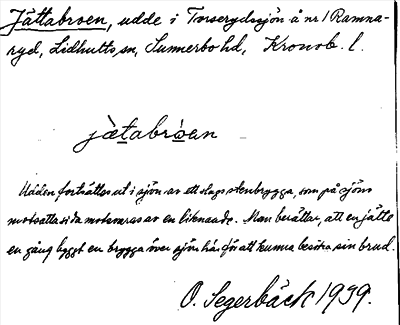 Jättabroen, udde i Torserydssjön å nr 1 Ramna-
ryd, Lidhults sn, Sunnerbo hd, Kronob. l.
jätabroen
Udden fortsättes ut i sjön av ett slags stenbrygga, som på sjöns
motsatta sida motsvaras av en liknande. Man berättar, att en jätte
en gång byggt en brygga över sjön här för att kunna besöka sin brud.
O. Segerbäck 1939.